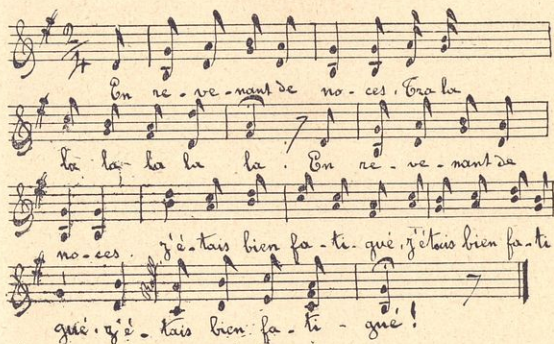 2/4
En re-ve-nant de no-ces. Tra la
la la la la la. En re-ve-nant de
no-ces. J'é-tais bien fa-ti-gué, j'étais bien fa-ti
gué. j'é-tais bien fa-ti-gué!